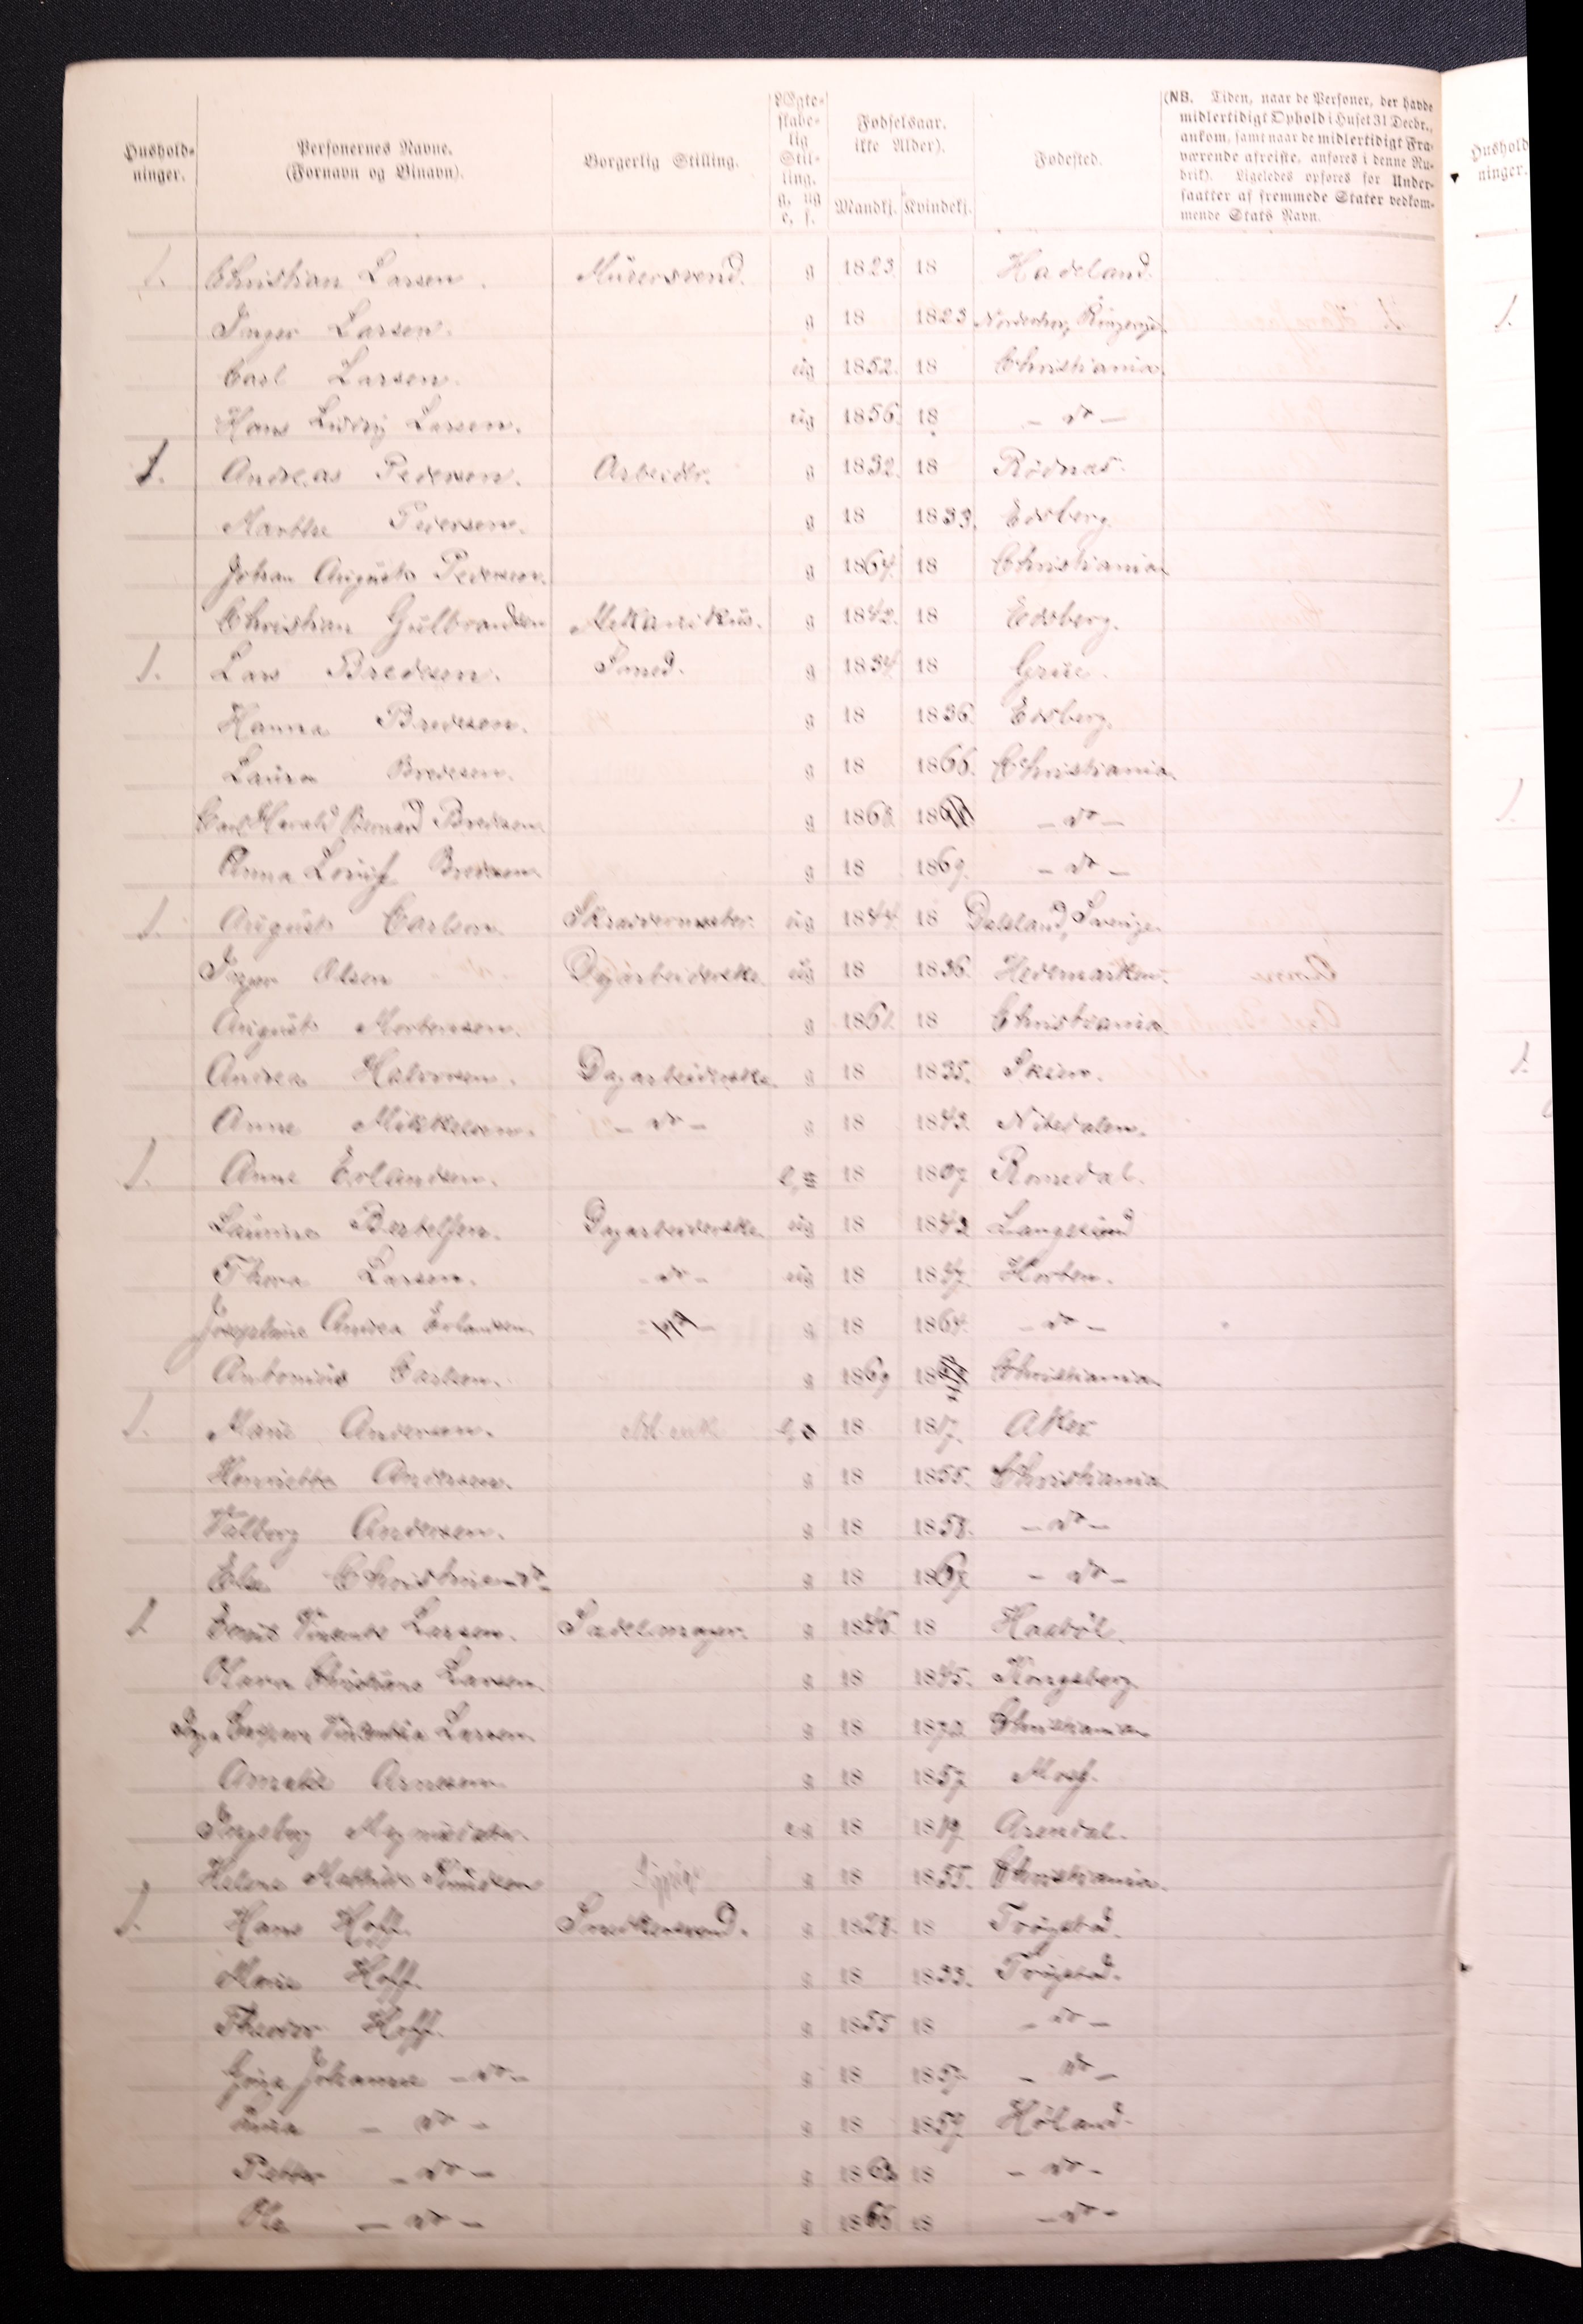 Hushold-
ninger.
Personernes Navne.
(Fornavn og Binavn).
Borgerlig Stilling.
Ægte-
skabe-
lig
Stil-
ling.
g, ug
e, f.
Fødselsaar.
ikke Alder).
Mandkj. Kvindekj.
Fødested.
(NB. Tiden, naar de Personer, der havde
midlertidigt Ophold i Huset 31 Decbr.,
ankom, samt naar de midlertidigt Fra-
værende afreiste, anføres i denne Ru-
brik). Ligeledes opføres for Under-
saatter af fremmede Stater vedkom-
mende Stats Navn.
Hushold
ninger.
1. Christian Larsen. Murersvend. g 1823. 18 Hadeland.
Inger Larsen. g 18 1823 Norderhov, Ringerige.
Carl Larsen. ug 1852. 18 Christiania.
Hans Ludvig Larsen. ug 1856. 18 – do –
1. Andreas Pedersen. Arbeider. g 1832. 18 Rødnæs.
Marthe Pedersen. g 18 1833. Edsberg.
Johan August Pedersen. g 1864. 18 Christiania
Christian Gulbrandsen Mekanikus. g 1842. 18 Edsberg.
1. Lars Bredesen. Smed. g 1834 18 Grue.
Hanna Bredesen. g 18 1836. Edsberg.
Laura Bredesen. g 18 1866. Christiania
Carl Harald Bernard Bredesen. g 1868. 18 – do –
Anna Lovise Bredesen. g 18 1869. – do –
1. August Carlsen. Skræddermester. ug 1844. 18 Dalsland, Sverige.
Inger Olsen Dagarbeiderske. ug 18 1836. Hedemarken.
August Mortensen. g 1861. 18 Christiania
Andrea Halvorsen. Dagarbeiderske. g 18 1835. Skien.
Anne Mikkelsen. – do – g 18 1843. Nitedalen.
1. Anne Erlandsen. e, 18 1807 Romedal.
Bertelsen. Dagarbeiderske. ug 18 1843 Langesund
Thora Larsen. – do – ug 18 1847. Horten.
Josephine Andrea Erlandsen. g 18 1864. – do –
Antonius Carlsen. g 1869 18 Christiania
1. Marie Andersen. e, 18 1817. Aker
Henriette Andersen. g 18 1855. Christiania
Valborg Andersen. g 18 1858. – do –
Else g 18 1867 – do –
1 Larsen. Sadelmager. g 1846. 18
Christiane Larsen. g 18 1845. Kongsberg.
Larsen. g 18 1872. Christiania
Amalie Arnesen. g 18 1857 Moss.
Ingeborg 18 1819. Arendal.
Helene Mathilde Knudsen g 18 1855. Christiania.
1. Hans Hoff. Snedkersvend. g 1828. 18 Trøgstad.
Marie Hoff. g 18 1833. Trøgstad.
Theodor Hoff. g 1855 18 – do –
Johanne – do – g 18 1857 – do –
– do – g 18 1859 Høland.
Petter – do – g 1863 18 – do –
Ole – do – g 1866 18 – do –